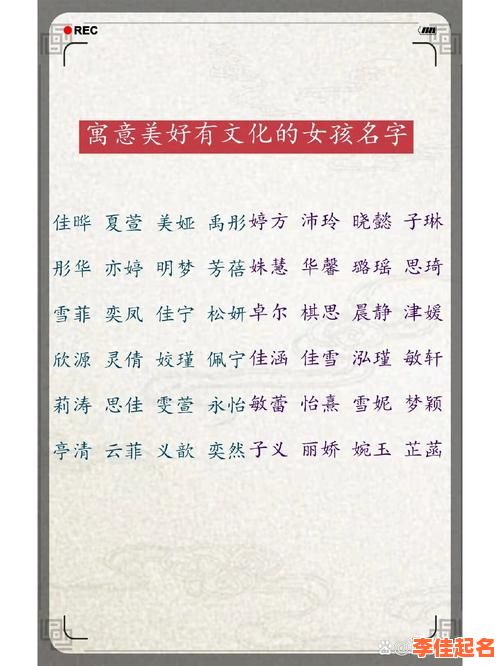 REC
寓意美好有文化的女孩名字
佳晔 夏萱 美娅 禹彤 婷方 沛玲 晓懿 子琳
彤华 亦婷 明梦 芳蓓 姝慧 华馨 璐瑶 思琦
雪菲 奕凤 佳宁 松妍 卓尔 棋思 晨静 津媛
欣源 灵倩 姣瑾 佩宁 佳涵 佳雪 泓瑾 敏轩
莉涛 思佳 雯萱 永怡 敏蕾 怡熹 雪妮 梦颖
亭清 云菲 义歆 奕然 子义 丽娇 婉玉 芷菡
李佳起名